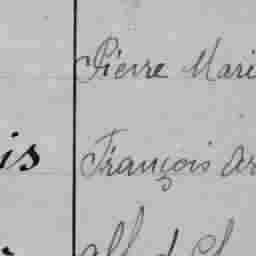 Pierre Mari
is François Ar